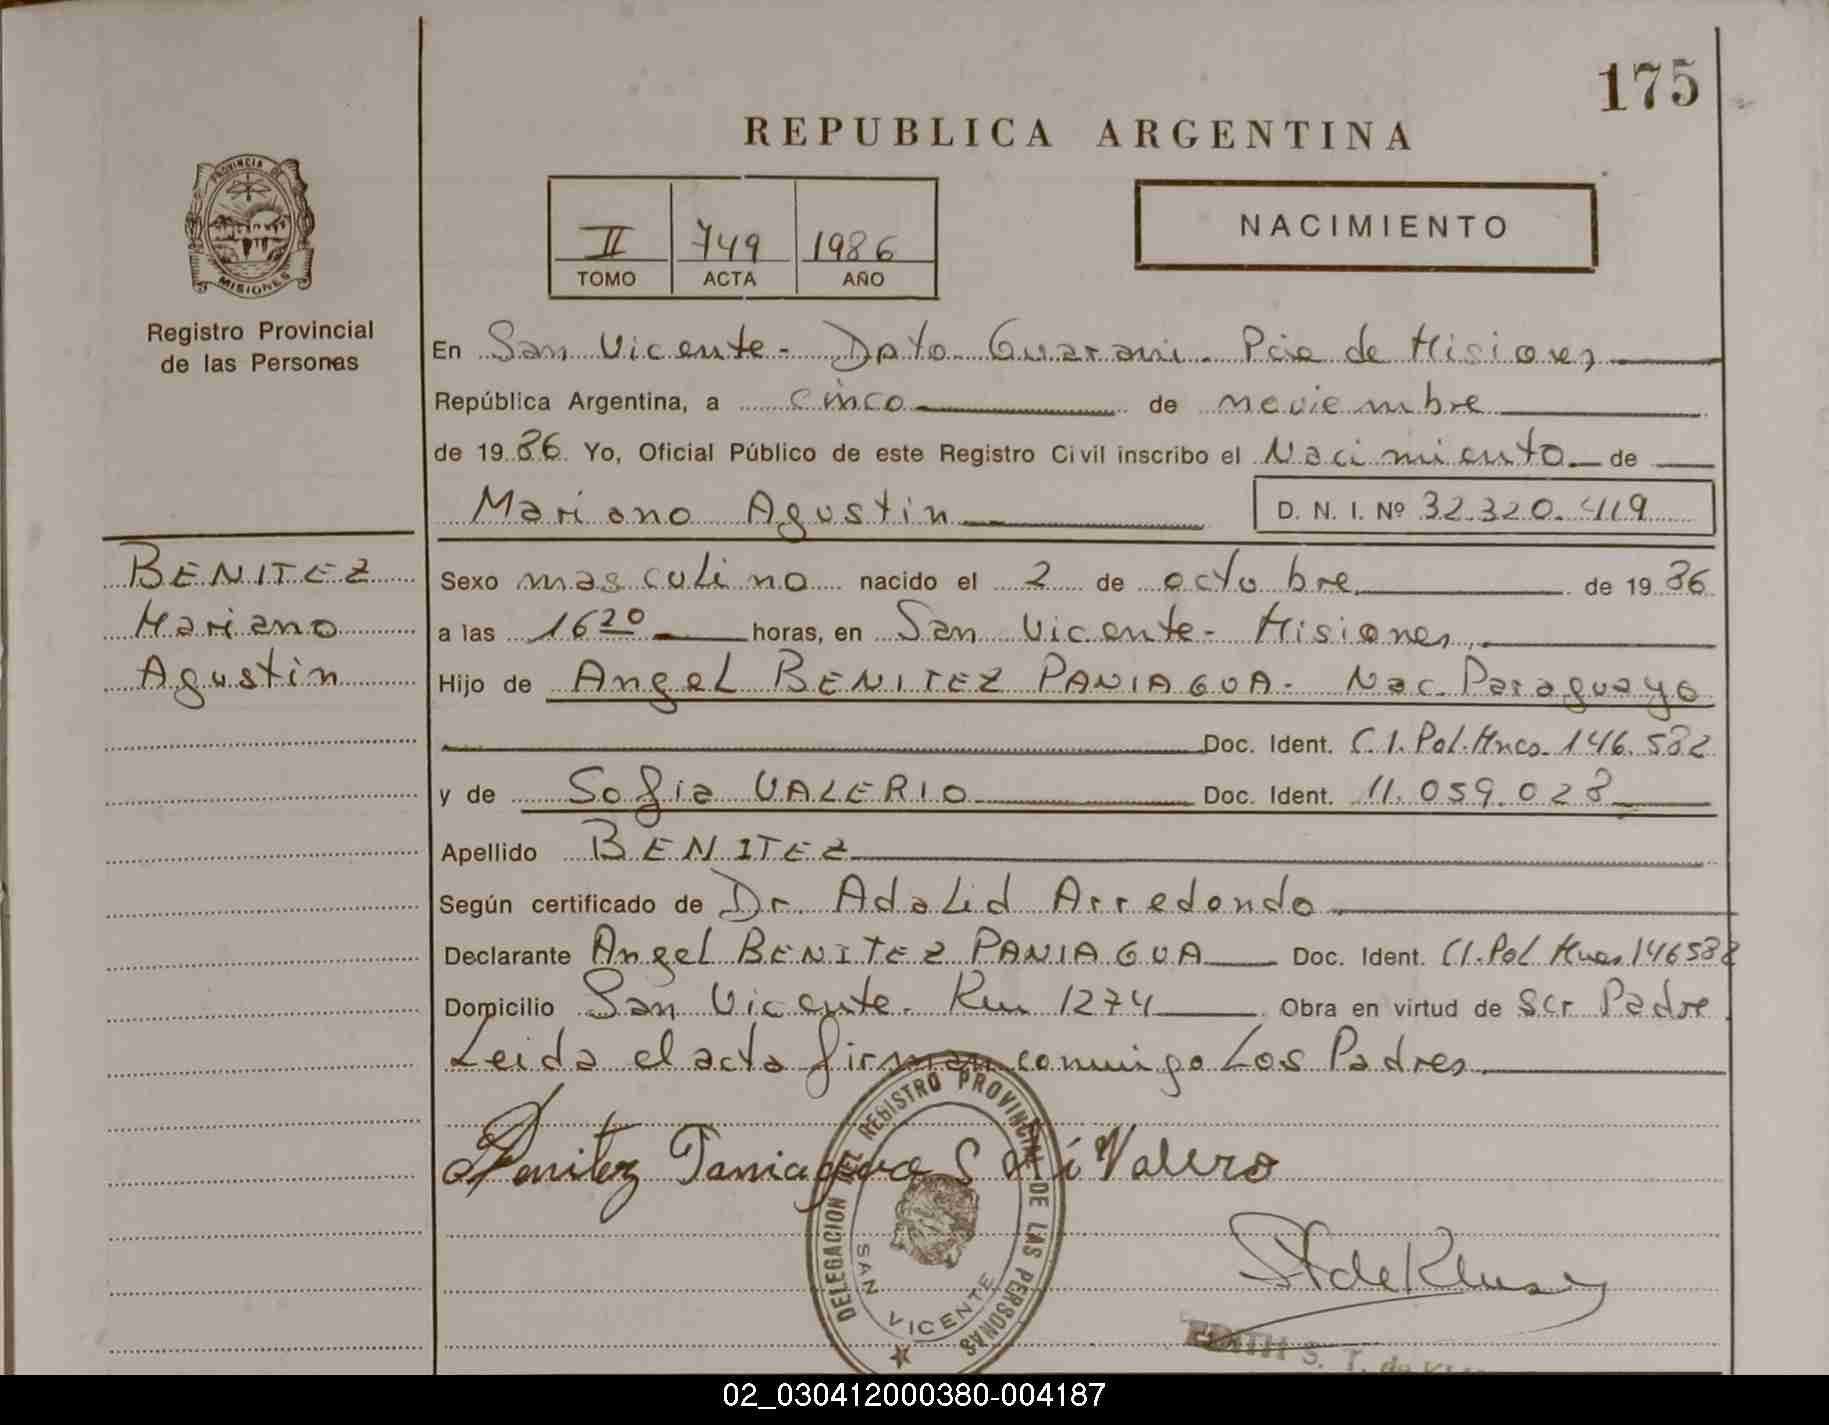 175
REPUBLICA ARGENTINA
PROVINCIA DE
MISIONES
Registro Provincial
de las Personas
II 749 1986
TOMO ACTA AÑO
NACIMIENTO
En San Vicente - Dpto Guarani - Pcia de Misiones
República Argentina, a cinco de noviembre
de 1986 Yo, Oficial Público de este Registro Civil inscribo el Nacimiento de
Mariano Agustin D. N. I. Nº 32.320.419
BENITEZ
Mariano
Agustin
Sexo masculino nacido el 2 de octubre de 1986
a las 16 20 horas, en San Vicente - Misiones
Hijo de Angel BENITEZ PANIAGUA - Nac. Paraguayo
Doc. Ident. C.I. Pol. Mnes. 146.582
y de Sofia VALERIO Doc. Ident. 11.059.028
Apellido BENITEZ
Según certificado de Dr. Adalid Arredondo
Declarante Angel BENITEZ PANIAGUA Doc. Ident. CI. Pol Mnes 146582
Domicilio San Vicente - Km 1274 Obra en virtud de ser Padre
Leida el acta firman conmigo Los Padres
Benitez Paniagua Sofi Valero
DELEGACION DEL REGISTRO PROVINCIAL DE LAS PERSONAS
SAN VICENTE
EDITH S. T. de
02_030412000380-004187